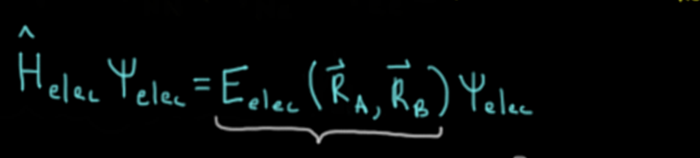 Ĥ_elec Ψ_elec = E_elec (R⃗_A, R⃗_B) Ψ_elec